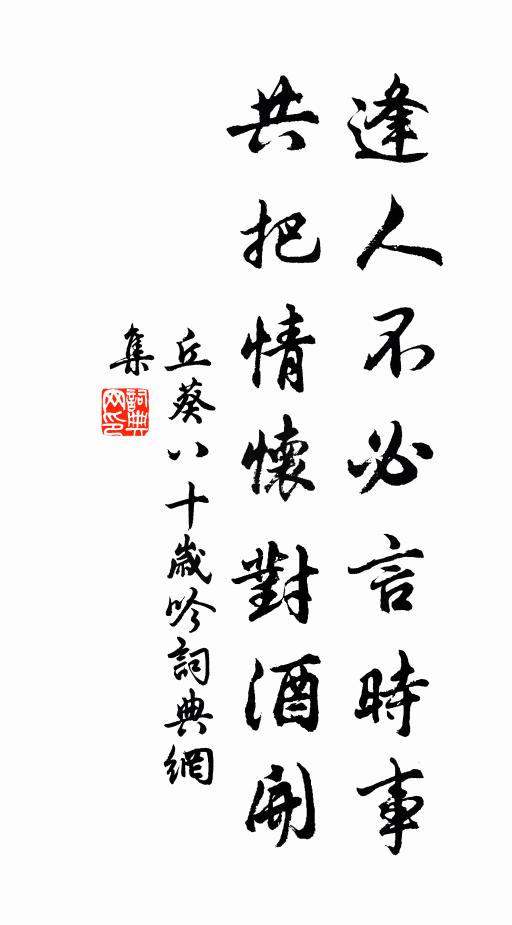 逢人不必言時事
共把情懷對酒開
丘葵八十歲吟詞典網
集
詞典网印